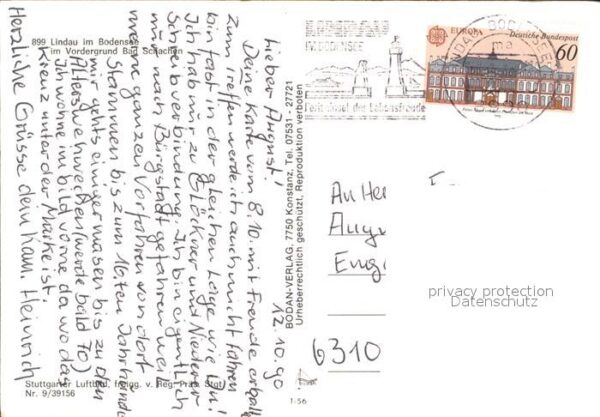 899 Lindau im Bodensee
im Vordergrund Bad Schachen
12.10.90
Lieber August!
Deine Karte vom 8.10. mit Freude erhalten
zum Treffen werde ich auch nicht fahren
bin fast in der gleichen Lage wie Du!
Ich hab mir zu Glöckner und Niederer
Schreibverbindung. Ich bin eigentlich
nur nach Bürgstadt gefahren weil
meine ganzen Vorfahren von dort
Stammen bis zum 16ten Jahrhundert
mir gehts einigermasen bis zu den
Alterswehwechen (werde bald 70)
Ich wohne im bild vorne da wo das
Kreuz unter der Marke ist.
Herzliche Grüsse dein Kam. Heinrich
Stuttgarter Luftbild, freigg. v. Reg. Präs. Stgt.
Nr. 9/39156
BODAN-VERLAG, 7750 Konstanz, Tel. 07531 - 27721
Urheberrechtlich geschützt, Reproduktion verboten
1-56
IM BODENSEE
Ferieninsel der Lebensfreude
EUROPA
Deutsche Bundespost
60
An Herrn
6310
privacy protection
Datenschutz